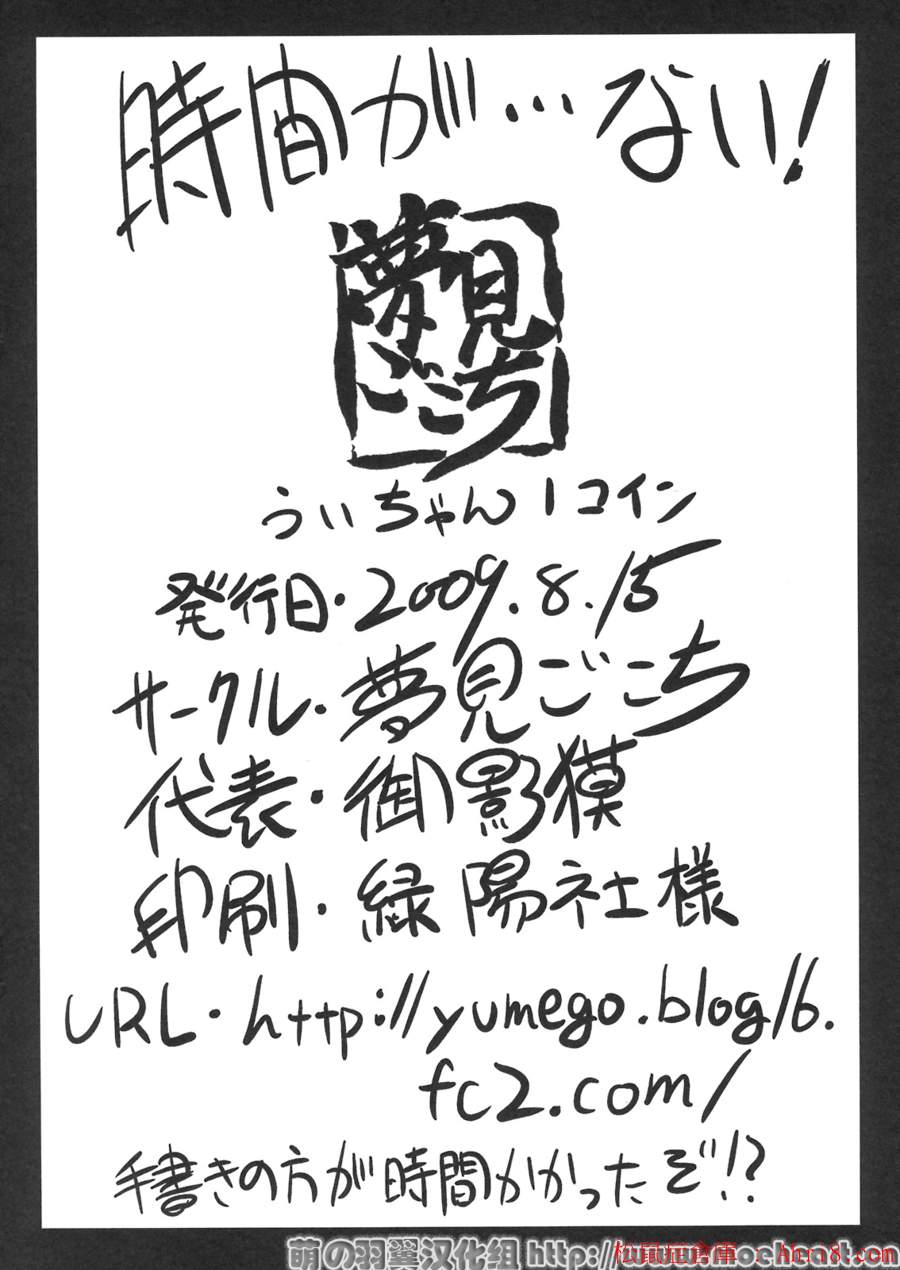 時間が…ない!
夢見ごこち
ういちゃん1コイン
発行日・2009.8.15
サークル・夢見ごこち
代表・御影獏
印刷・緑陽社様
URL・http://yumego.blog16.
fc2.com/
手書きの方が時間かかったぞ!?
萌の羽翼汉化组 http://
松鼠症倉庫